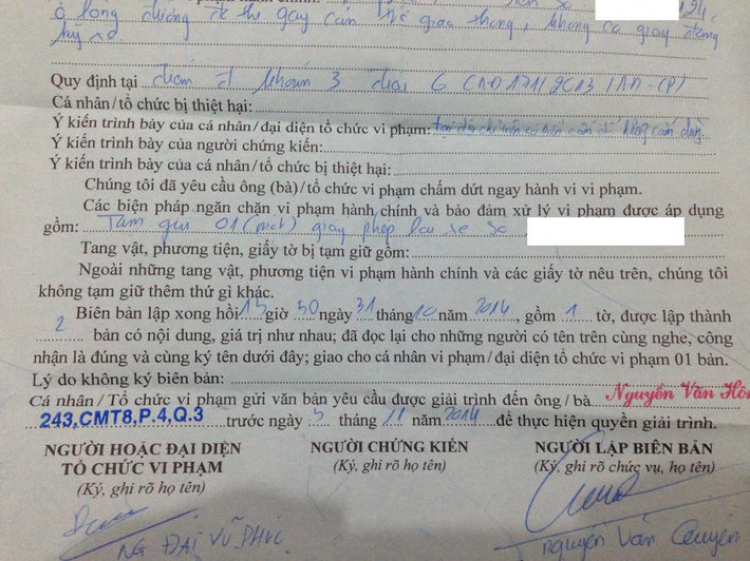 ô lòng đường để thi gây cản trở giao thông, không có giấy đăng
ký xe
Quy định tại điểm đ khoản 3 điều 6 (NĐ171/2013/NĐ-CP)
Cá nhân/tổ chức bị thiệt hại:
Ý kiến trình bày của cá nhân/đại diện tổ chức vi phạm: tại địa chỉ trên
Ý kiến trình bày của người chứng kiến:
Ý kiến trình bày của cá nhân/tổ chức bị thiệt hại:
Chúng tôi đã yêu cầu ông (bà)/tổ chức vi phạm chấm dứt ngay hành vi vi phạm.
Các biện pháp ngăn chặn vi phạm hành chính và bảo đảm xử lý vi phạm được áp dụng
gồm: Tạm giữ 01 (một) giấy phép lái xe số
Tang vật, phương tiện, giấy tờ bị tạm giữ gồm:
Ngoài những tang vật, phương tiện vi phạm hành chính và các giấy tờ nêu trên, chúng tôi
không tạm giữ thêm thứ gì khác.
Biên bản lập xong hồi 15 giờ 50 ngày 31 tháng 10 năm 2014, gồm 1 tờ, được lập thành
2 bản có nội dung, giá trị như nhau; đã đọc lại cho những người có tên trên cùng nghe, công
nhận là đúng và cùng ký tên dưới đây; giao cho cá nhân vi phạm/đại diện tổ chức vi phạm 01 bản.
Lý do không ký biên bản:
Cá nhân/Tổ chức vi phạm gửi văn bản yêu cầu được giải trình đến ông/bà Nguyễn Văn
243,CMT8,P.4,Q.3 trước ngày 5 tháng 11 năm 2014 để thực hiện quyền giải trình.
NGƯỜI HOẶC ĐẠI DIỆN NGƯỜI CHỨNG KIẾN NGƯỜI LẬP BIÊN BẢN
TỔ CHỨC VI PHẠM (Ký, ghi rõ họ tên) (Ký, ghi rõ chức vụ, họ tên)
(Ký, ghi rõ họ tên)
NG ĐẠI VŨ PHÚC nguyễn Văn Quyên